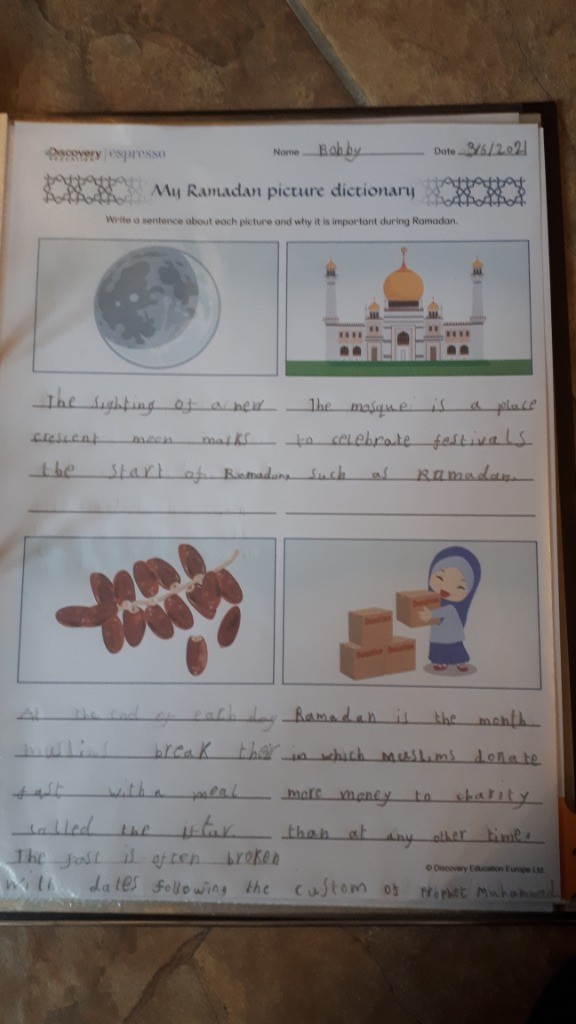 Discovery EDUCATION | espresso
Name Bobby Date 3/5/2021
My Ramadan picture dictionary
Write a sentence about each picture and why it is important during Ramadan.
The sighting of a new
crescent moon marks
the start of Ramadan,
The mosque is a place
to celebrate festivals
such as Ramadan.
Donation
Donation
Donation Donation
At the end of each day
muslims break ther
fast with a meal
called the iftar.
The fast is often broken
with dates following the custom of prophet Muhammad
Ramadan is the month
in which muslims donate
more money to charity
than at any other time.
© Discovery Education Europe Ltd.